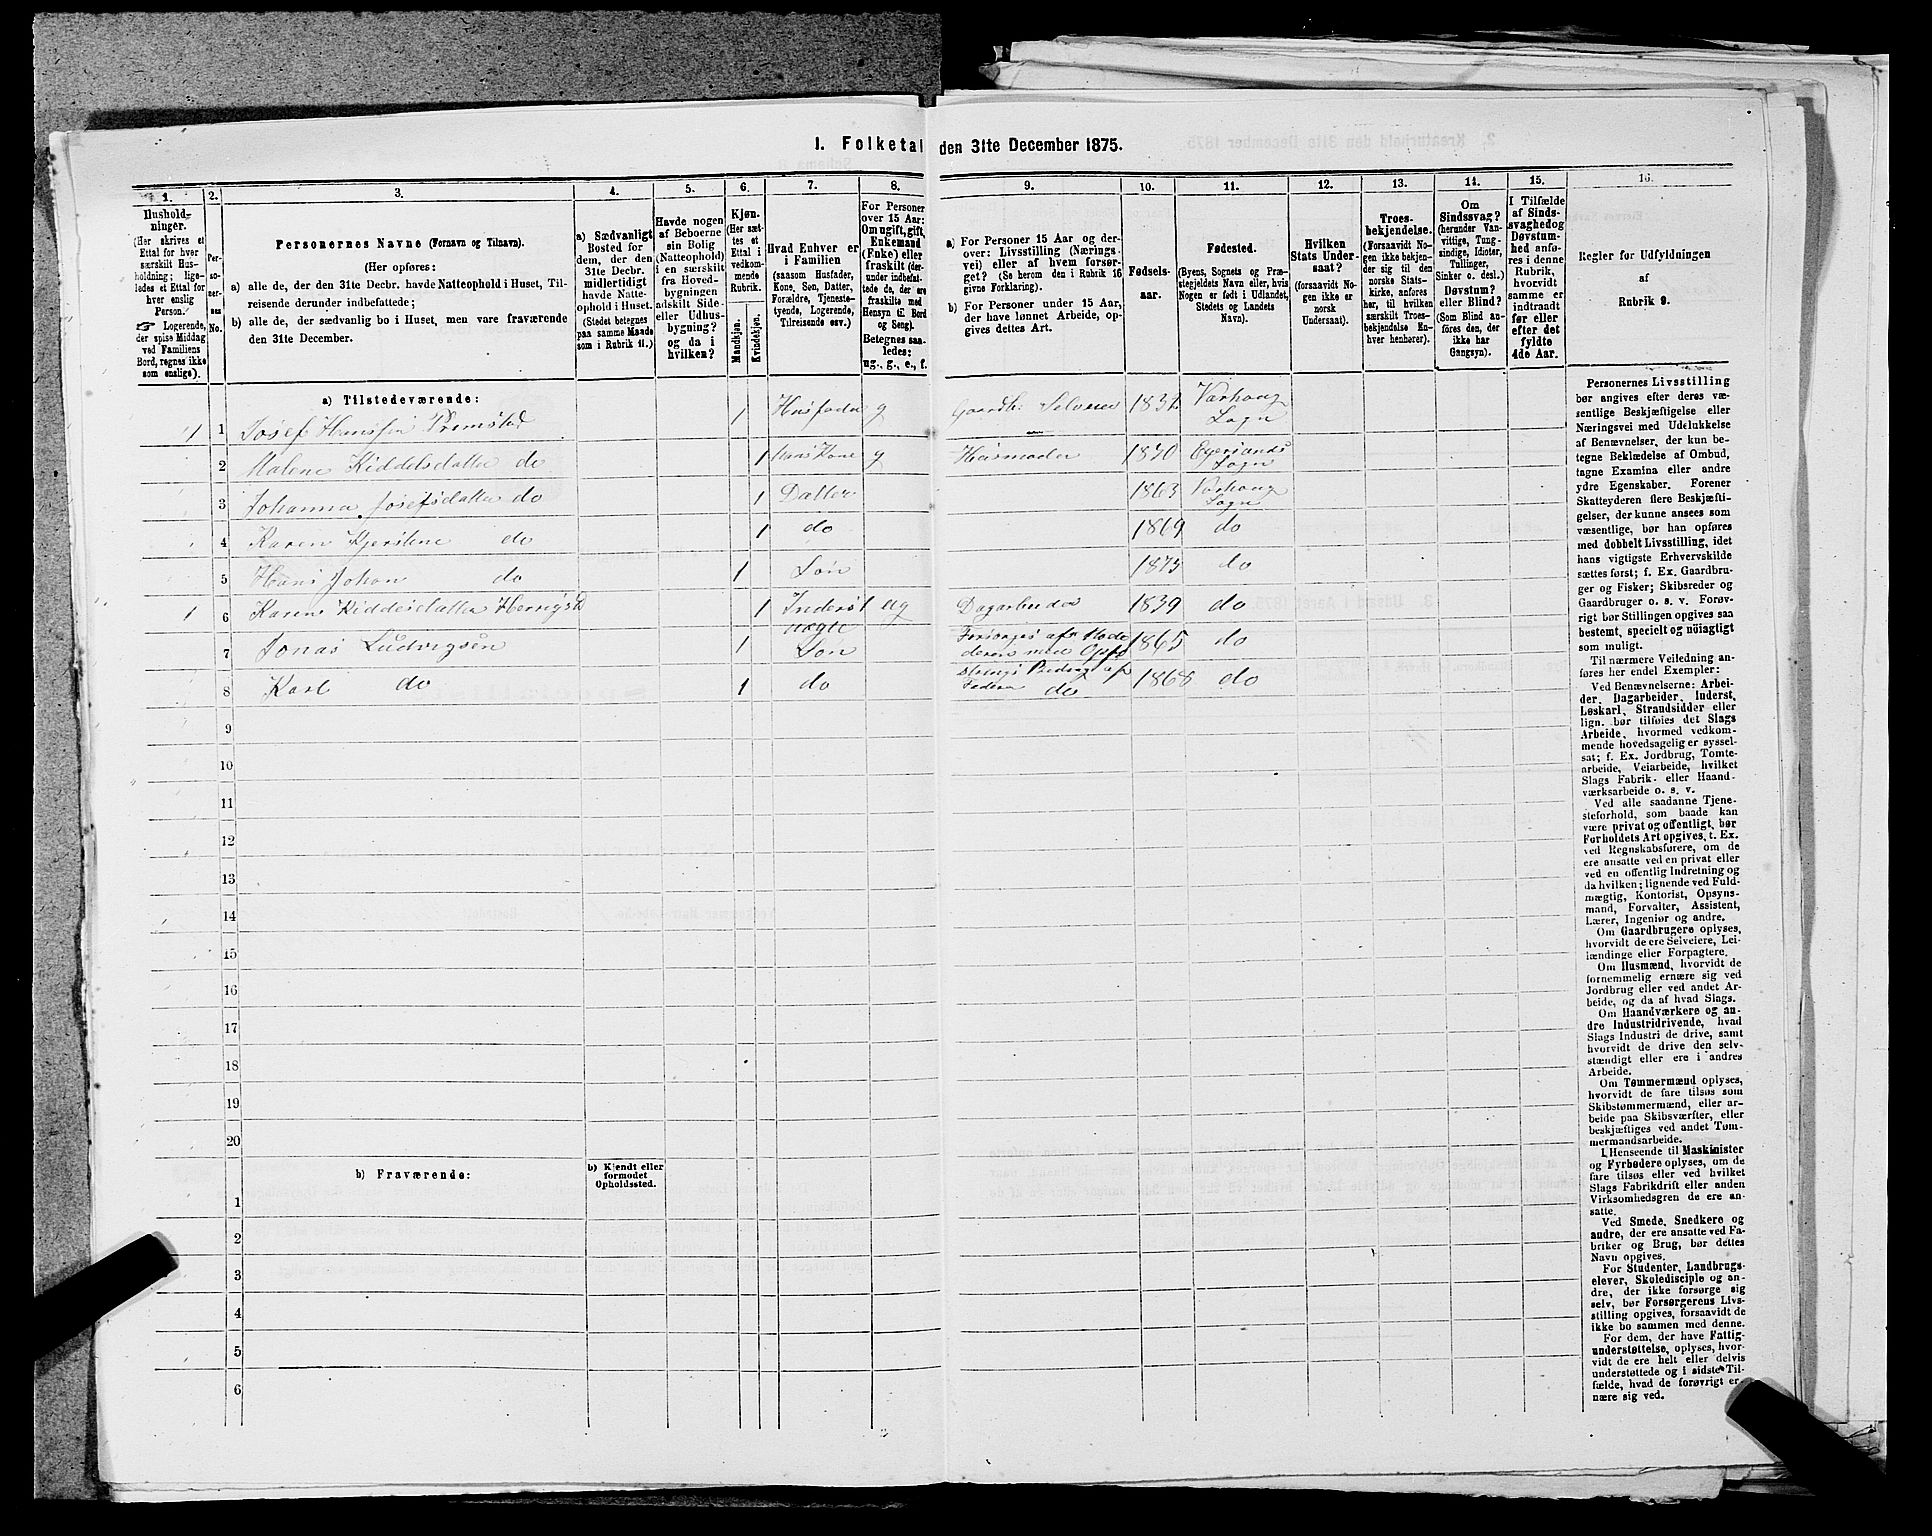 1. Folketal den 31te December 1875.
1. 2. 3. 4. 5. 6. 7. 8. 9. 10. 11. 12. 13. 14. 15. 16.
Hushold-
ninger.
(Her skrives et
Ettal for hver
særskilt Hus-
holdning; lige-
ledes et Ettal for
hver enslig
Person.
☞ Logerende,
der spise Middag
ved Familiens
Bord, regnes ikke
som enslige).
Per-
so-
ner-
nes
No.
Personernes Navne (Fornavn og Tilnavn).
(Her opføres:
a) alle de, der den 31te Decbr. havde Natteophold i Huset, Til-
reisende derunder indbefattede;
b) alle de, der sædvanlig bo i Huset, men vare fraværende
den 31te December.
a) Sædvanligt
Bosted for
dem, der den
31te Decbr.
midlertidigt
havde Natte-
ophold i Huset.
(Stedet betegnes
paa samme Maade
som i Rubrik 11.)
Havde nogen
af Beboerne
sin Bolig
(Natteophold)
i en særskilt
fra Hoved-
bygningen
adskilt Side-
eller Udhus-
bygning?
og da i
hvilken?
Kjøn.
(Her sæt-
tes et
Ettal i
vedkom-
mende
Rubrik.
Mandkjøn.
Kvindekjøn.
Hvad Enhver er
i Familien
(saasom Husfader,
Kone, Søn, Datter,
Forældre, Tjeneste-
tyende, Logerende,
Tilreisende osv.)
For Personer
over 15 Aar:
Om ugift, gift,
Enkemand
(Enke) eller
fraskilt (der-
under indbefat-
tede de, der ere
fraskilte med
Hensyn til Bord
og Seng).
Betegnes saa-
ledes:
ug., g., e., f.
a) For Personer 15 Aar og der-
over: Livsstilling (Nærings-
vei) eller af hvem forsør-
get? (Se herom den i Rubrik 16
givne Forklaring).
b) For Personer under 15 Aar,
der have lønnet Arbeide, op-
gives dettes Art.
Fødsels-
aar.
Fødested.
(Byens, Sognets og Præ-
stegjeldets Navn eller, hvis
Nogen er født i Udlandet,
Stedets og Landets
Navn).
Hvilken
Stats Under-
saat?
(forsaavidt No-
gen ikke er
norsk
Undersaat).
Troes-
bekjendelse.
(Forsaavidt No-
gen ikke bekjen-
der sig til den
norske Stats-
kirke, anføres
her, til hvilken
særskilt Troes-
bekjendelse En-
hver henhører).
Om
Sindssvag?
(herunder Van-
vittige, Tung-
sindige, Idioter,
Tullinger,
Sinker o. desl.)
Døvstum?
eller Blind?
(Som Blind an-
føres den, der
ikke har
Gangsyn).
I Tilfælde
af Sinds-
svaghed og
Døvstum-
hed anfø-
res i denne
Rubrik,
hvorvidt
samme er
indtraadt
før eller
efter det
fyldte
4de Aar.
Regler for Udfyldningen
af
Rubrik 9.
a) Tilstedeværende:
1 1 Josef Hanssen 1 Husfader g Gaardbr. Selveier Varhoug Sogn
2 Malene Kiddelsdatter do 1 Kone g Husmoder 1830 Sogn
3 Johanna Josefsdatter do 1 Datter 1863 Varhoug Sogn
4 Karen Kjerstine do 1 do 1869 do
5 Hans Johan do 1 Søn 1875 do
1 6 Karen Kiddelsdatter 1 Inderst ug 1839 do
7 Jonas Ludvigsen 1 uægte Søn 1865 do
8 Karl do 1 do do 1868 do
9
10
11
12
13
14
15
16
17
18
19
20
b) Fraværende:
b) Kjendt eller
formodet
Opholdssted.
1
2
3
4
5
6
Personernes Livsstilling
bør angives efter deres væ-
sentlige Beskjæftigelse eller
Næringsvei med Udelukkelse
af Benævnelser, der kun be-
tegne Beklædelse af Ombud,
tagne Examina eller andre
ydre Egenskaber. Forener
Skatteyderen flere Beskjæfti-
gelser, der kunne ansees som
væsentlige, bør han opføres
med dobbelt Livsstilling, idet
hans vigtigste Erhvervskilde
sættes først; f. Ex. Gaardbru-
ger og Fisker; Skibsreder og
Gaardbruger o. s. v. Forøv-
rigt bør Stillingen opgives saa
bestemt, specielt og nøiagtigt
som muligt.
Til nærmere Veiledning an-
føres her endel Exempler:
Ved Benævnelserne: Arbei-
der, Dagarbeider, Inderst,
Løskarl, Strandsidder eller
lign. bør tilføies det Slags
Arbeide, hvormed vedkom-
mende hovedsagelig er syssel-
sat; f. Ex. Jordbrug, Tomte-
arbeide, Veiarbeide, hvilket
Slags Fabrik- eller Haand-
værksarbeide o. s. v.
Ved alle saadanne Tjene-
steforhold, som baade kan
være privat og offentligt, bør
Forholdets Art opgives, t. Ex.
ved Regnskabsførere, om de
ere ansatte ved en privat eller
ved en offentlig Indretning og
da hvilken; lignende ved Fuld-
mægtig, Kontorist, Opsyns-
mand, Forvalter, Assistent,
Lærer, Ingeniør og andre.
Om Gaardbrugere oplyses,
hvorvidt de ere Selveiere, Lei-
lændinge eller Forpagtere.
Om Husmænd, hvorvidt de
fornemmelig ernære sig ved
Jordbrug eller ved andet Ar-
beide, og da af hvad Slags.
Om Haandværkere og an-
dre Industridrivende, hvad
Slags Industri de drive, samt
hvorvidt de drive den selv-
stændigt eller ere i andres
Arbeide.
Om Tømmermænd oplyses,
hvorvidt de fare tilsøs som
Skibstømmermænd, eller ar-
beide paa Skibsværfter, eller
beskjæftiges ved andet Tøm-
mermandsarbeide.
I Henseende til Maskinister
og Fyrbødere oplyses, om de
fare tilsøs eller ved hvilket
Slags Fabrikdrift eller anden
Virksomhedsgren de ere an-
satte.
Ved Smede, Snedkere og
andre, der ere ansatte ved Fa-
briker og Brug, bør dettes
Navn opgives.
For Studenter, Landbrugs-
elever, Skoledisciple og an-
dre, der ikke forsørge sig
selv, bør Forsørgerens Livs-
stilling opgives, forsaavidt de
ikke bo sammen med denne.
For dem, der have Fattig-
understøttelse, oplyses, hvor-
vidt de ere helt eller delvis
understøttede og i sidste Til-
fælde, hvad de forøvrigt er-
nære sig ved.